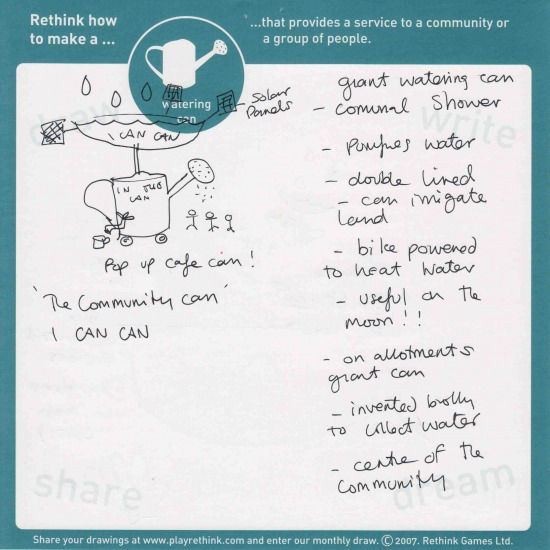 Rethink how
to make a ...
...that provides a service to a community or
a group of people.
watering
can
draw
write
Solar
Panels
I CAN CAN
IN TUB
CAN
Pop up cafe can!
'The Community can'
I CAN CAN
giant watering can
- comunal Shower
- Pumpes water
- double lined
- can irrigate
land
- bike powered
to heat water
- useful on the
moon!!
- on allotments
giant can
- invented brolly
to collect water
- centre of the
community
share
dream
Share your drawings at www.playrethink.com and enter our monthly draw. © 2007. Rethink Games Ltd.